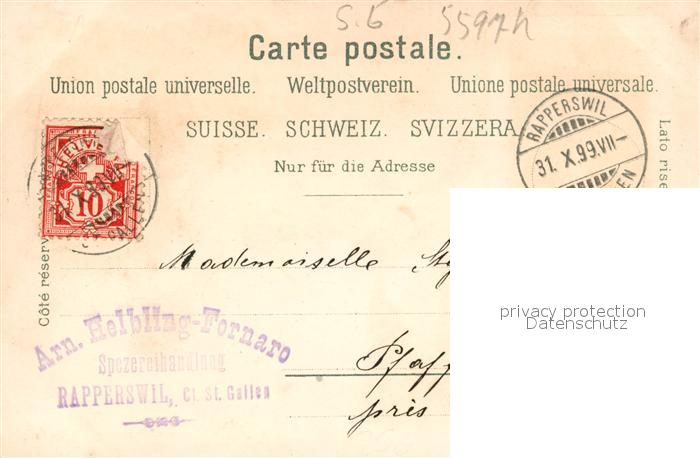 S.G 5597h
Carte postale.
Union postale universelle. Weltpostverein. Unione postale universale.
SUISSE. SCHWEIZ. SVIZZERA.
Nur für die Adresse
RAPPERSWIL
31. X.99.VII–
10
Lato rise
Côté réserv
Mademoiselle
Arn. Helbling-Fornaro
Spezereihandlung
RAPPERSWIL, Ct. St. Gallen
Pfäff
près
privacy protection
Datenschutz